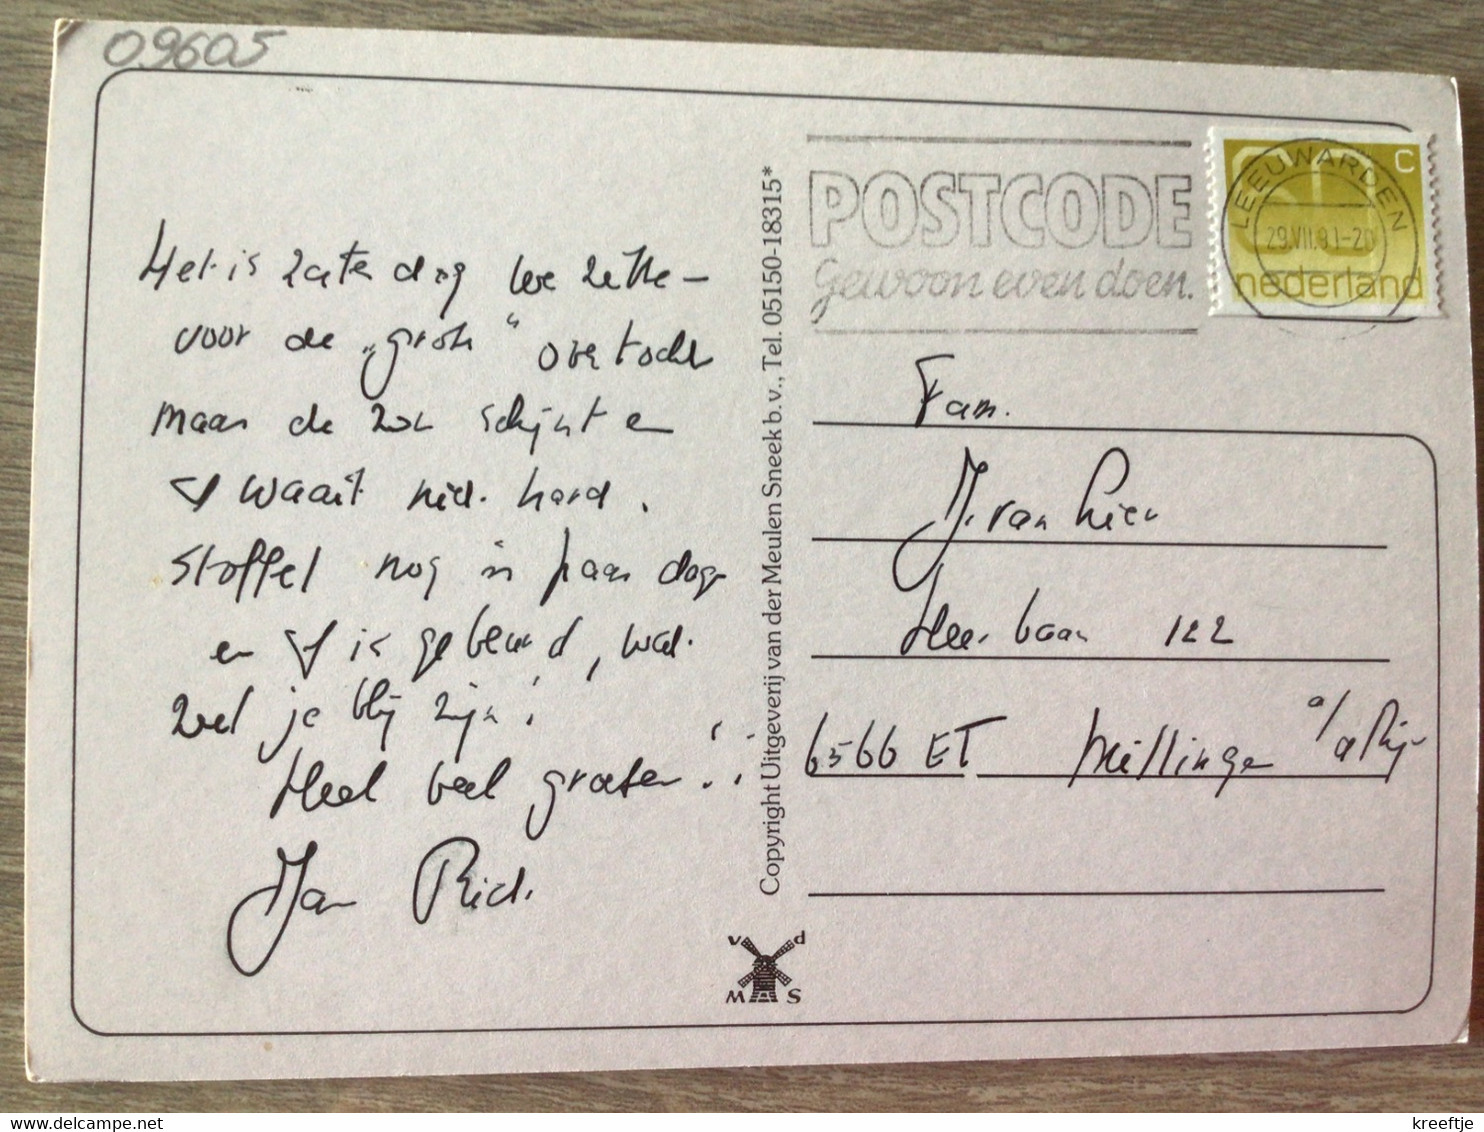 09605
Het is zaterdag we zitte-
voor de „grote“ overtocht
maar de zon schijnt en
't waait niet hard.
Stoffel nog 'n paar dage
en 't is gebeurd, wat
zul je blij zijn!
Heel veel groeten!!
Jan Rick.
Copyright Uitgeverij van der Meulen Sneek b.v., Tel. 05150-18315*
v d
M S
POSTCODE
Gewoon even doen.
LEEUWARDEN
29.VII.81-20
C
nederland
Fam.
J. van Lier
Heerbaan 122
6566 ET Millingen a/d Rijn
delcampe.net
kreeftje